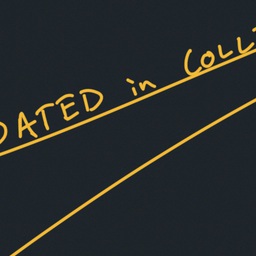 DATED in COLL